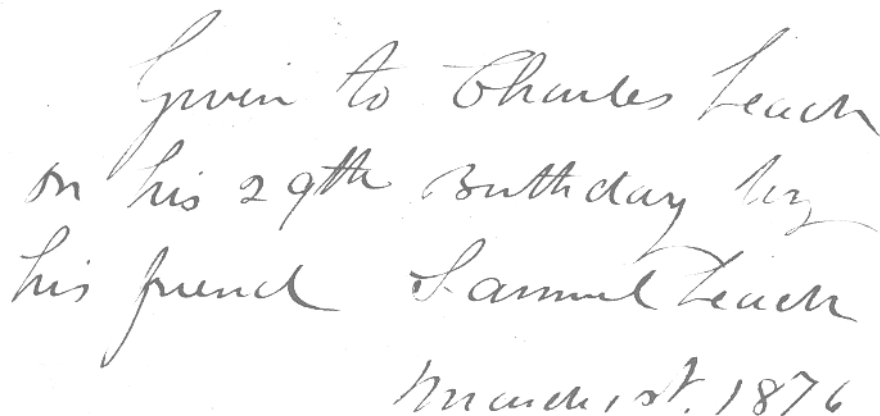 Given to Charles Leach
on his 29th Birthday by
his friend Samuel Leach
March 1st. 1876